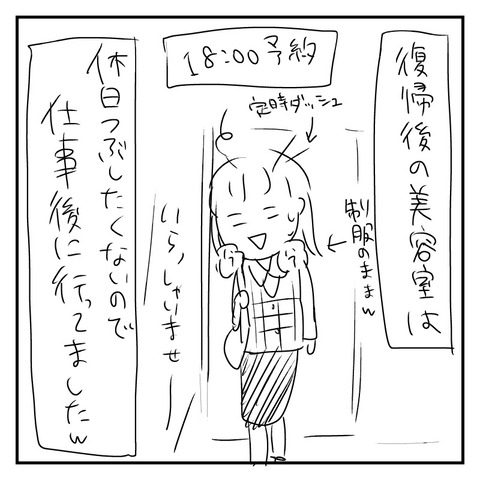 復帰後の美容室は
18:00予約
定時ダッシュ
制服のままw
いらっしゃいませー
休日つぶしたくないので
仕事後に行ってましたw